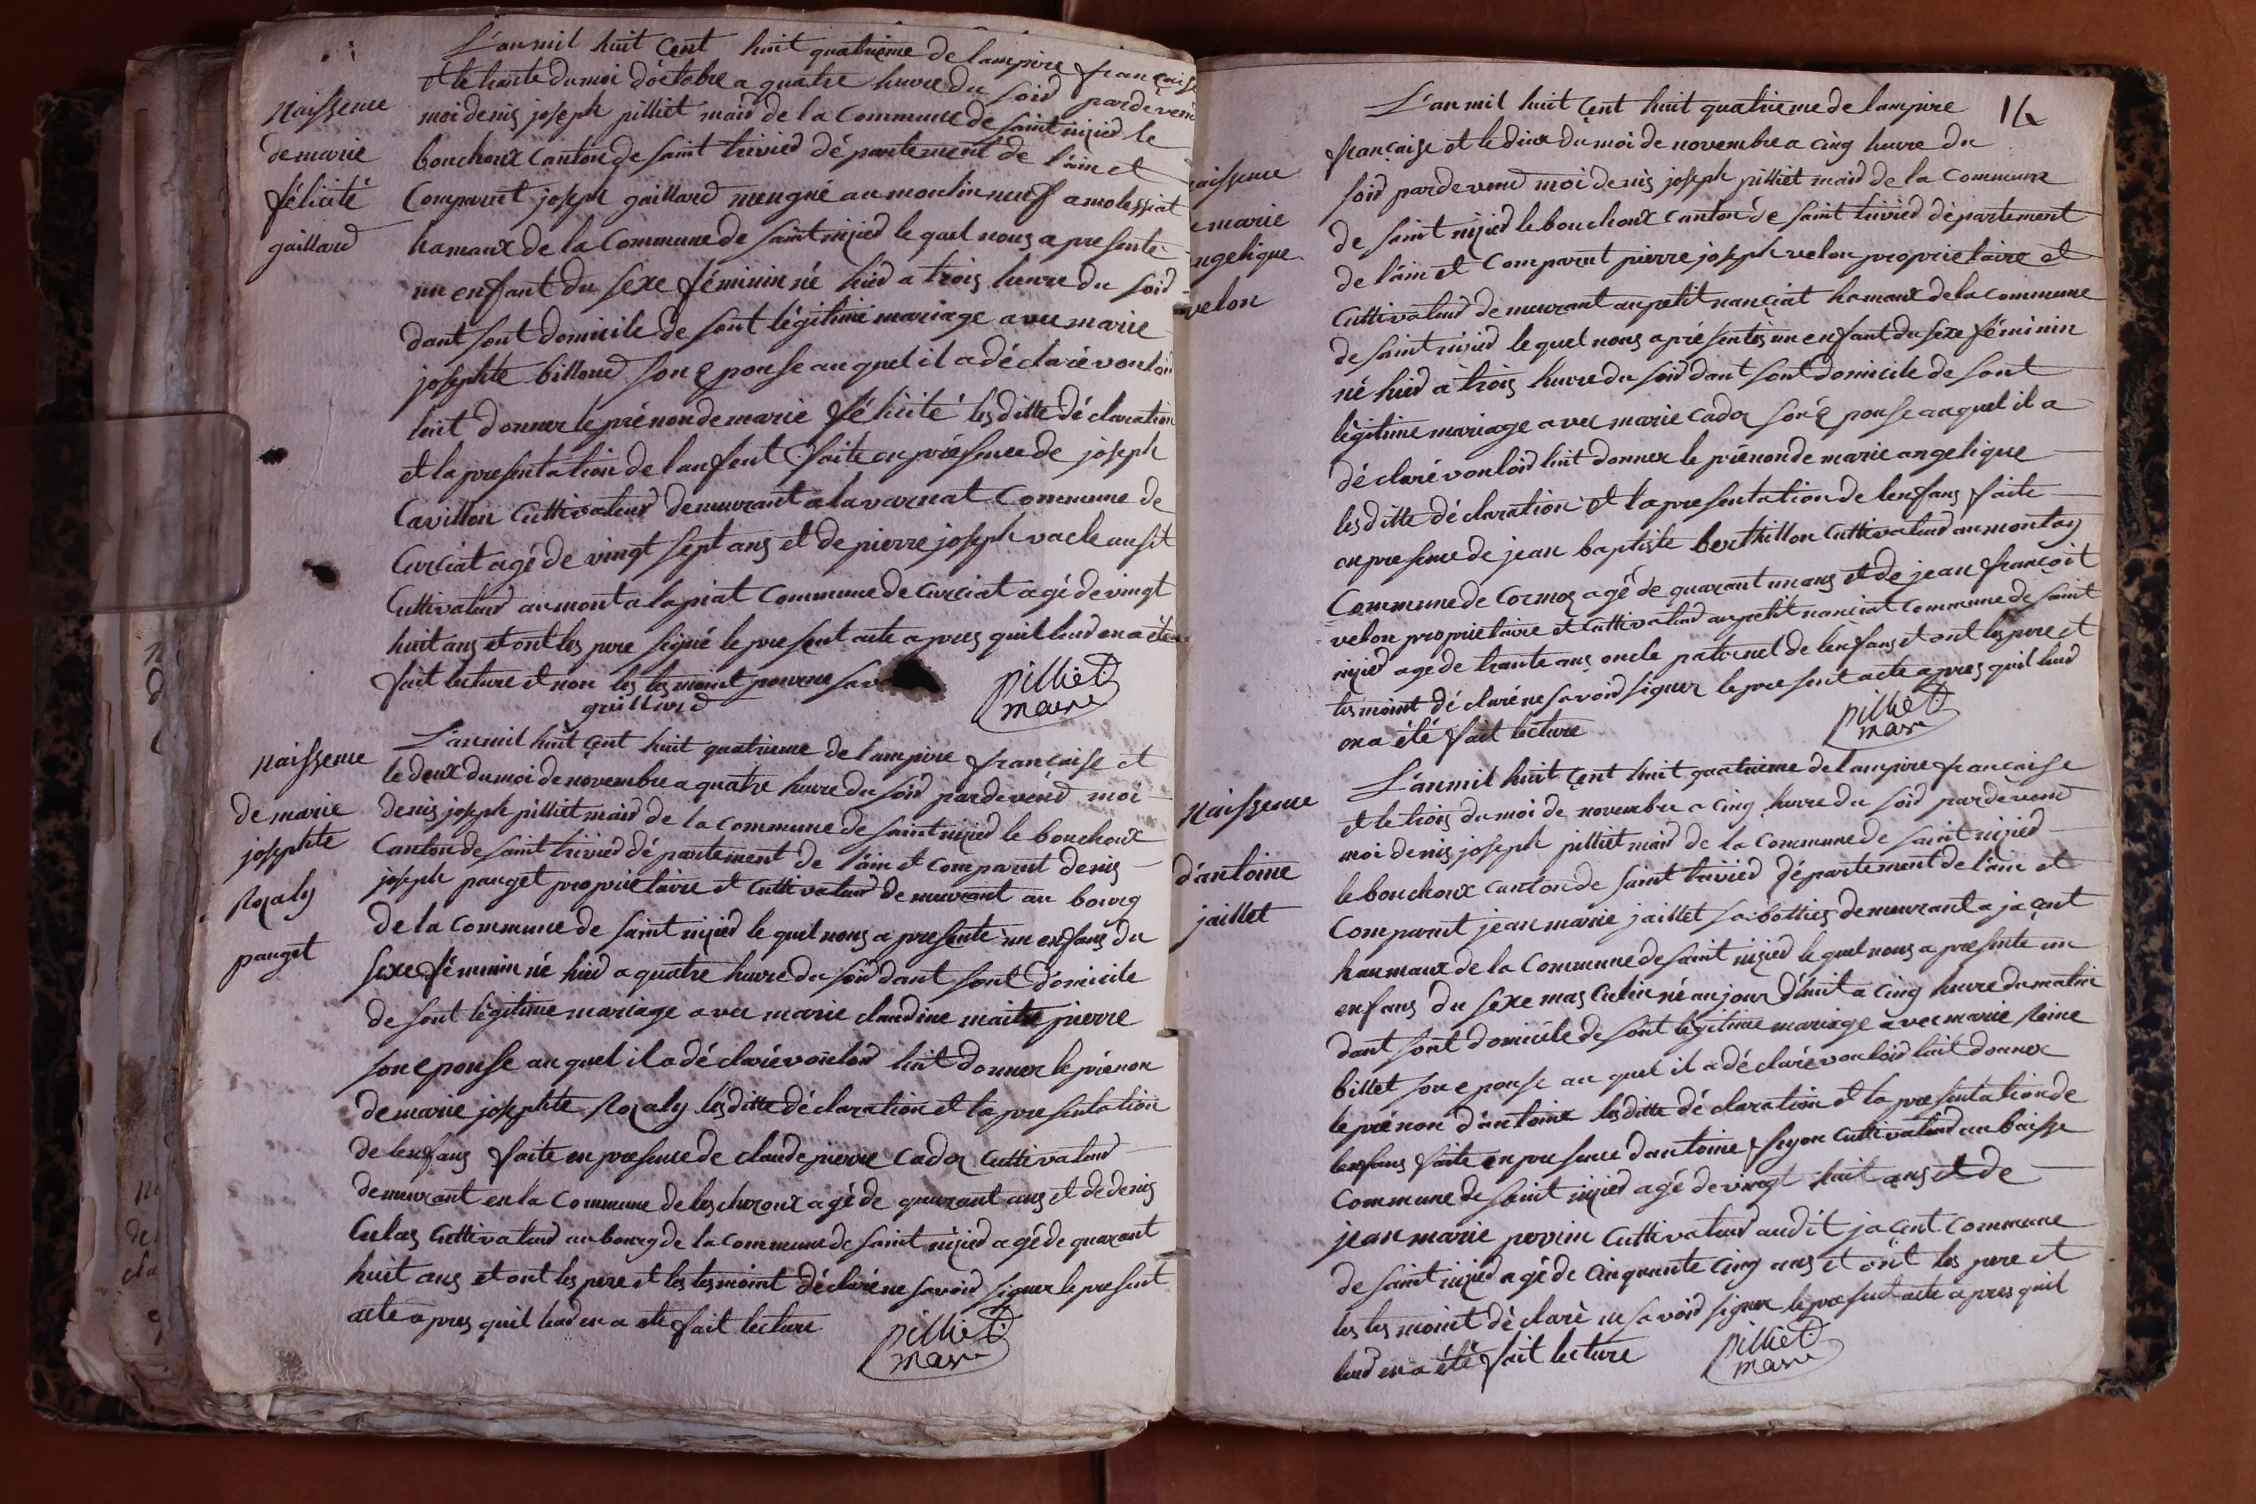 L'an mil huit cent huit quatrieme de lampire française
et le trante du moi d'octobre a quatre heure du soir pardevent
moi denis joseph pilliet maid de la commune de saint nizied le
bouchoux canton de saint trivied département de l'ain et
Comparut joseph gaillard meugné au moulin neuf a molessiat
hamaux de la Commune de saint nizied le quel nous a presenté
un enfant du sexe féminin né hied a trois heure du soid
dant sont domicile de sont légitime mariage avec marie
josephte billoud son eponse auquel il a déclaré vouloir
luit donner le prénon de marie félicité lesditte déclaration
et la presentation de lanfent faite en présence de joseph
Cavillon Cultivateud demeurant a la varnat Commune de
Curciat agé de vingt sept ans et de pierre joseph vacle ausit
Cultivateud au mont a lapiat Commune de Curciat agé de vingt
huit ans et ont les pere signé le present acte apres quil leud en a été
fait lecture et non les tesmoint pour ne
gaillard
pilliet
maire
Naissence
de marie
félicité
gaillard
L'an mil huit cent huit quatrieme de lampire française et
le deux du moi de novembre a quatre heure du soid pardevend moi
denis joseph pilliet maid de la commune de saint nizied le bouchoux
Canton de saint trivied département de l'ain et comparut denis
joseph pauget proprietaire et cultivateud demeurant au bourg
de la commune de saint nizied le quel nous a presenté un enfans du
sexe féminin né hied a quatre heure du soid dant sont domicile
de sont légitime mariage avec marie claudine maitre pierre
son eponse au quel il a déclaré vouloid luit donner le prénon
de marie josephte Rozaly lesditte déclaration et la presentation
de lenfans faite en presence de claude pierre Cadoz Cultivateud
demeurant en la Commune de lescheroux agé de quarant ans et de denis
Culas Cultivateud au bourg de la commune de saint nizied agé de quarant
huit ans et ont les pere et les tesmoint déclaré ne savoid signer le present
acte apres quil leud en a été fait lecture
pilliet
maire
Naissence
de marie
josephte
Rozaly
pauget
14
L'an mil huit cent huit quatrieme de lampire
française et le deux du moi de novembre a cinq heure du
soid pardevend moi denis joseph pilliet maid de la Commune
de saint nizied le bouchoux canton de saint trivied département
de l'ain et Comparut pierre joseph velon proprietaire et
Cultivateud demeurant au petit nanciat hamaux de la commune
de saint nizied le quel nous a présentés un enfant du sexe féminin
né hied a trois heure du soid dant sont domicile de sont
légitime mariage avec marie Cadoz son eponse auquel il a
déclaré vouloid luit donner le prénon de marie angelique
lesditte déclaration et la presentation de lenfans faite
en presence de jean baptiste berthillon Cultivateud au montay
Commune de Cormoz agé de quarant un ans et de jean françoit
velon proprietaire et cultivateud au petit nanciat Commune de saint
nizied agé de trante ans oncle paternel de lenfans et ont les pere et
tesmoint déclaré ne savoid signer le present acte apres quil leud
en a été fait lecture
pilliet
maire
naissence
de marie
angelique
velon
L'an mil huit cent huit quatrieme de lampire française
et le trois du moi de novembre a cinq heure du soid pardevend
moi denis joseph pilliet maid de la Commune de saint nizied
le bouchoux canton de saint trivied département de l'ain et
Comparut jean marie jaillet sabottier demeurant a jacent
haumaux de la Commune de saint nizied le quel nous a presenté un
enfans du sexe mas Culin né au jour d'huit a cinq heure du matin
dant sont domicile de sont légitime mariage avec marie Reine
billet son eponse au quel il a déclaré vouloid luit donner
le prénon d'antoine lesditte déclaration et la presentation de
lenfans faite en presence dantoine feyon Cultivateud au baisse
Commune de saint nizied agé de vingt huit ans et de
jean marie pervin Cultivateud audit jacent Commune
de saint nizied agé de cinquante cinq ans et ont les pere et
les tesmoint déclaré ne savoid signer le present acte apres quil
leud en a été fait lecture
pilliet
maire
Naissence
d'antoine
jaillet